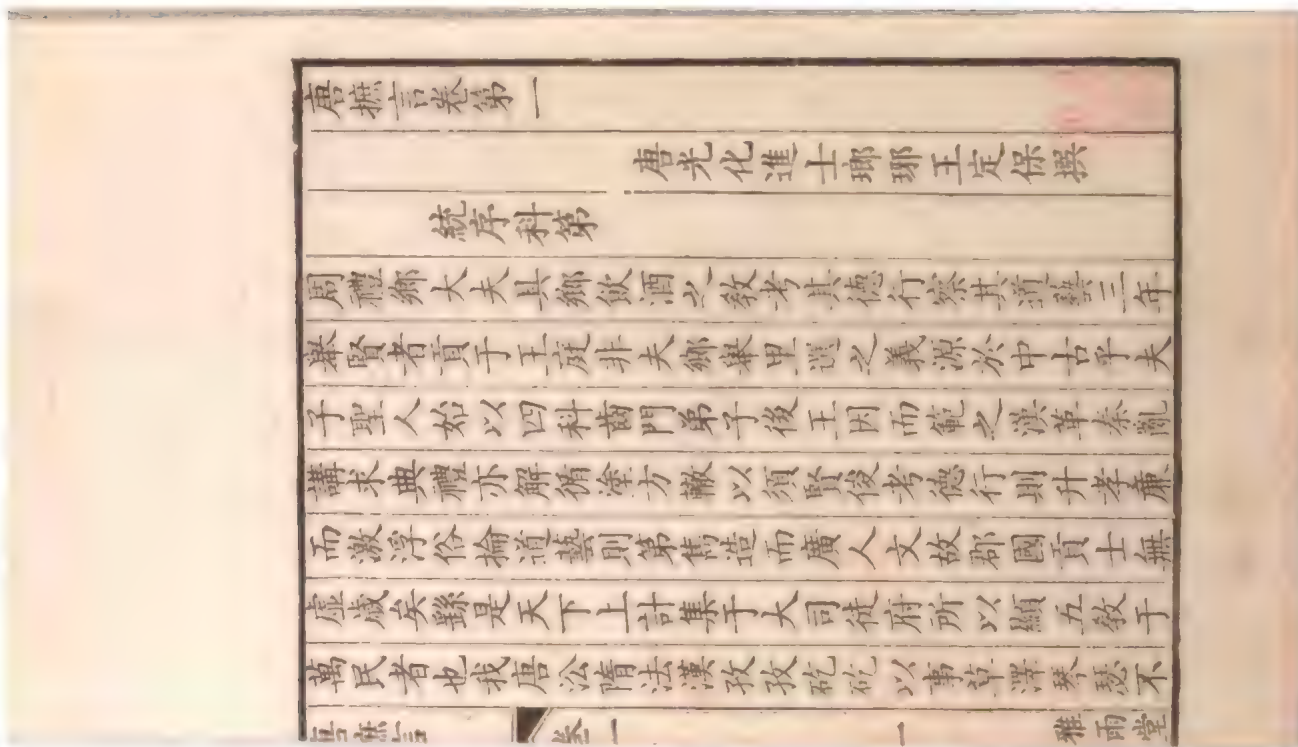 唐摭言卷第一
唐光化進士瑯琊王定保撰
統序科第
周禮鄉大夫具鄉飲酒之教考其德行察其道藝三年
舉賢者貢于王庭非夫鄉舉里選之義源於中古乎夫
子聖人始以四科齒門弟子後王因而範之漢革秦亂
講求典禮亦解循塗方轍以須賢俊考德行則升孝廉
而激浮俗掄道藝則第雋造而廣人文故郡國貢士無
虛歲矣繇是天下上計集于大司徒府所以顯五教于
萬民者也我唐沿隋法漢孜孜矻矻以事草澤琴瑟不
唐摭言 卷一 一 雅雨堂